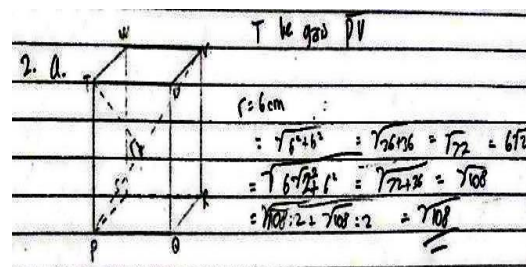 T ke garis PV
2. a.
W V
T U
r = 6 cm :
= √6²+6² = √36+36 = √72 = 6√2
= √6√2²+6² = √72+36 = √108
= √108:2 + √108:2 = √108
S R
P Q